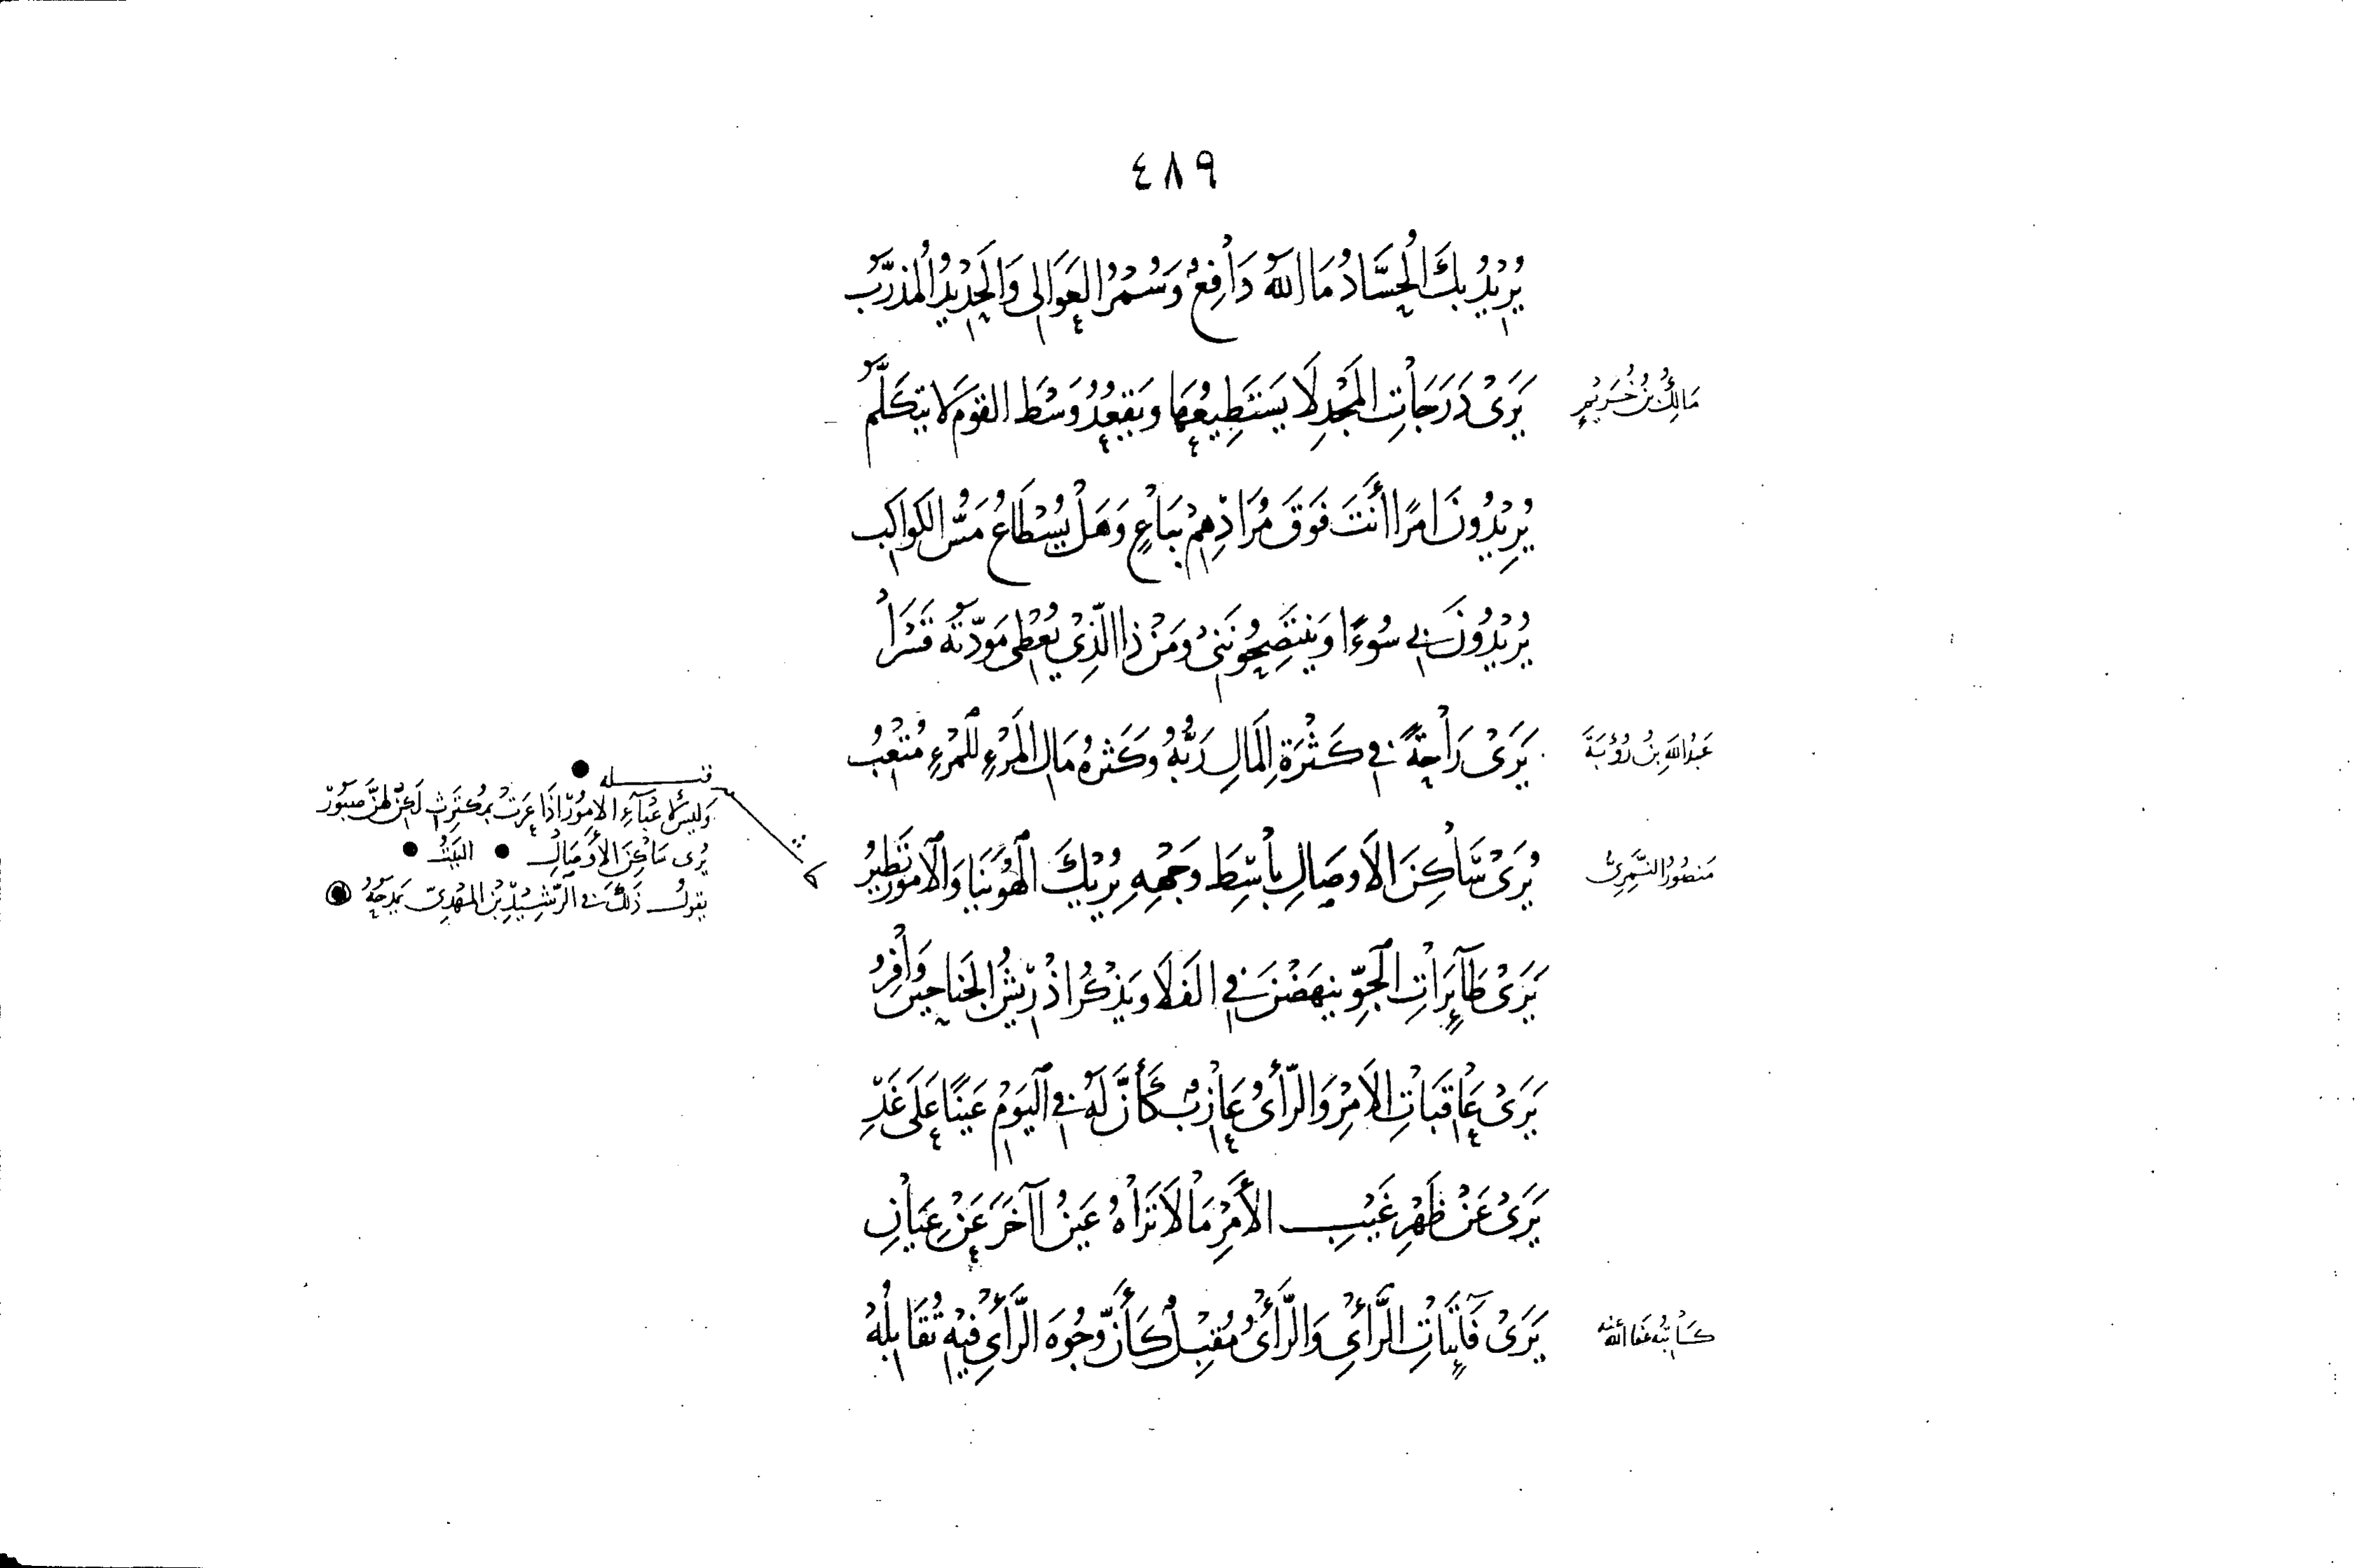 ٤٨٩
يُرِيْدُ بِكَ الْحُسَّادُ مَا اللهُ دَافِعٌ وَسُمْرُ الْعَوَالِي وَالْحَدِيْدُ الْمُذَرَّبُ
مَالِكُ بْنُ خُرَيْمٍ
يَرَىْ دَرَجَاتِ الْمَجْدِ لَا يَسْتَطِيعُهَا وَيَقْعُدُ وَسْطَ القَوْمِ لَا يَتَكَلَّمُ
يُرِيْدُونَ امرًا أَنْتَ فَوَقَ مُرَادِهِمْ بِبَاعٍ وَهَلْ يُسْطَاعُ مَسُّ الكَوَاكِبِ
يُرِيْدُونَ بِي سُوءًا وَيَنْتَصِحُونَنِىْ وَمَنْ ذَا الَّذِىْ يُعْطِى مَوَدَّتَهُ قَسْرَا
عَبْدُ اللهِ بْنُ رُؤْبَةَ
يَرَىْ رَاحَةً فِي كَثْرَةِ الْمَالِ رَبُّهُ وَكَثْرَهُ مَالِ الْمَرْءِ لِلْمَرْءِ مُتْعِبُ
مَنصُورُ النَّمَرِىُّ
يُرَىْ سَاكِنَ الاَوصَالِ بَاسِطَ وَجْهِهِ يُرِيْكَ الْهُوَيْنَا وَالْأُمُورُ تَطِيْرُ
قبله
وَلَيسَ لأَعْبَآءِ الامُوْرِ اذَا عَرَتْ بِمُكتَرِثٍ لَكِنْ لَهُنَّ صَبُوْرُ
يُرى سَاكِنَ الأَوصَالِ البَيْتُ
يَقولُ ذَلِكَ فِي الرَّشِيْدِ بْنِ الْمَهْدِىّ يَمدَحُهُ
يَرَىْ طَآئِرَاتِ الْجَوِّ يَنهَضْنَ فِي الفَلَا وَيَذْكُرُ اذْ رِيْشُ الْجَنَاحَيْنِ وَافِرُ
يَرَىْ عَاقِبَاتِ الاَمْرِ وَالرَّأىُ عَازِبٌ كَأَنَّ لَهُ فِي الْيَوْمِ عَيْنًا عَلَى غَدِ
يَرَىْ عَنْ ظَهْرِ غَيْبِ الأَمْرِ مَا لَا تَرَاهُ عَيْنُ آخَرَ عَنْ عِيَانِ
كَاتِبُهُ عَفَا اللهُ عنه
يَرَىْ فَآئِتَاتِ الرَّأىِ وَالرَّأىُ مُقْبِلٌ كَأَنَّ وُجُوهَ الرَّأىِ فِيْهِ تُقَابِلُهُ